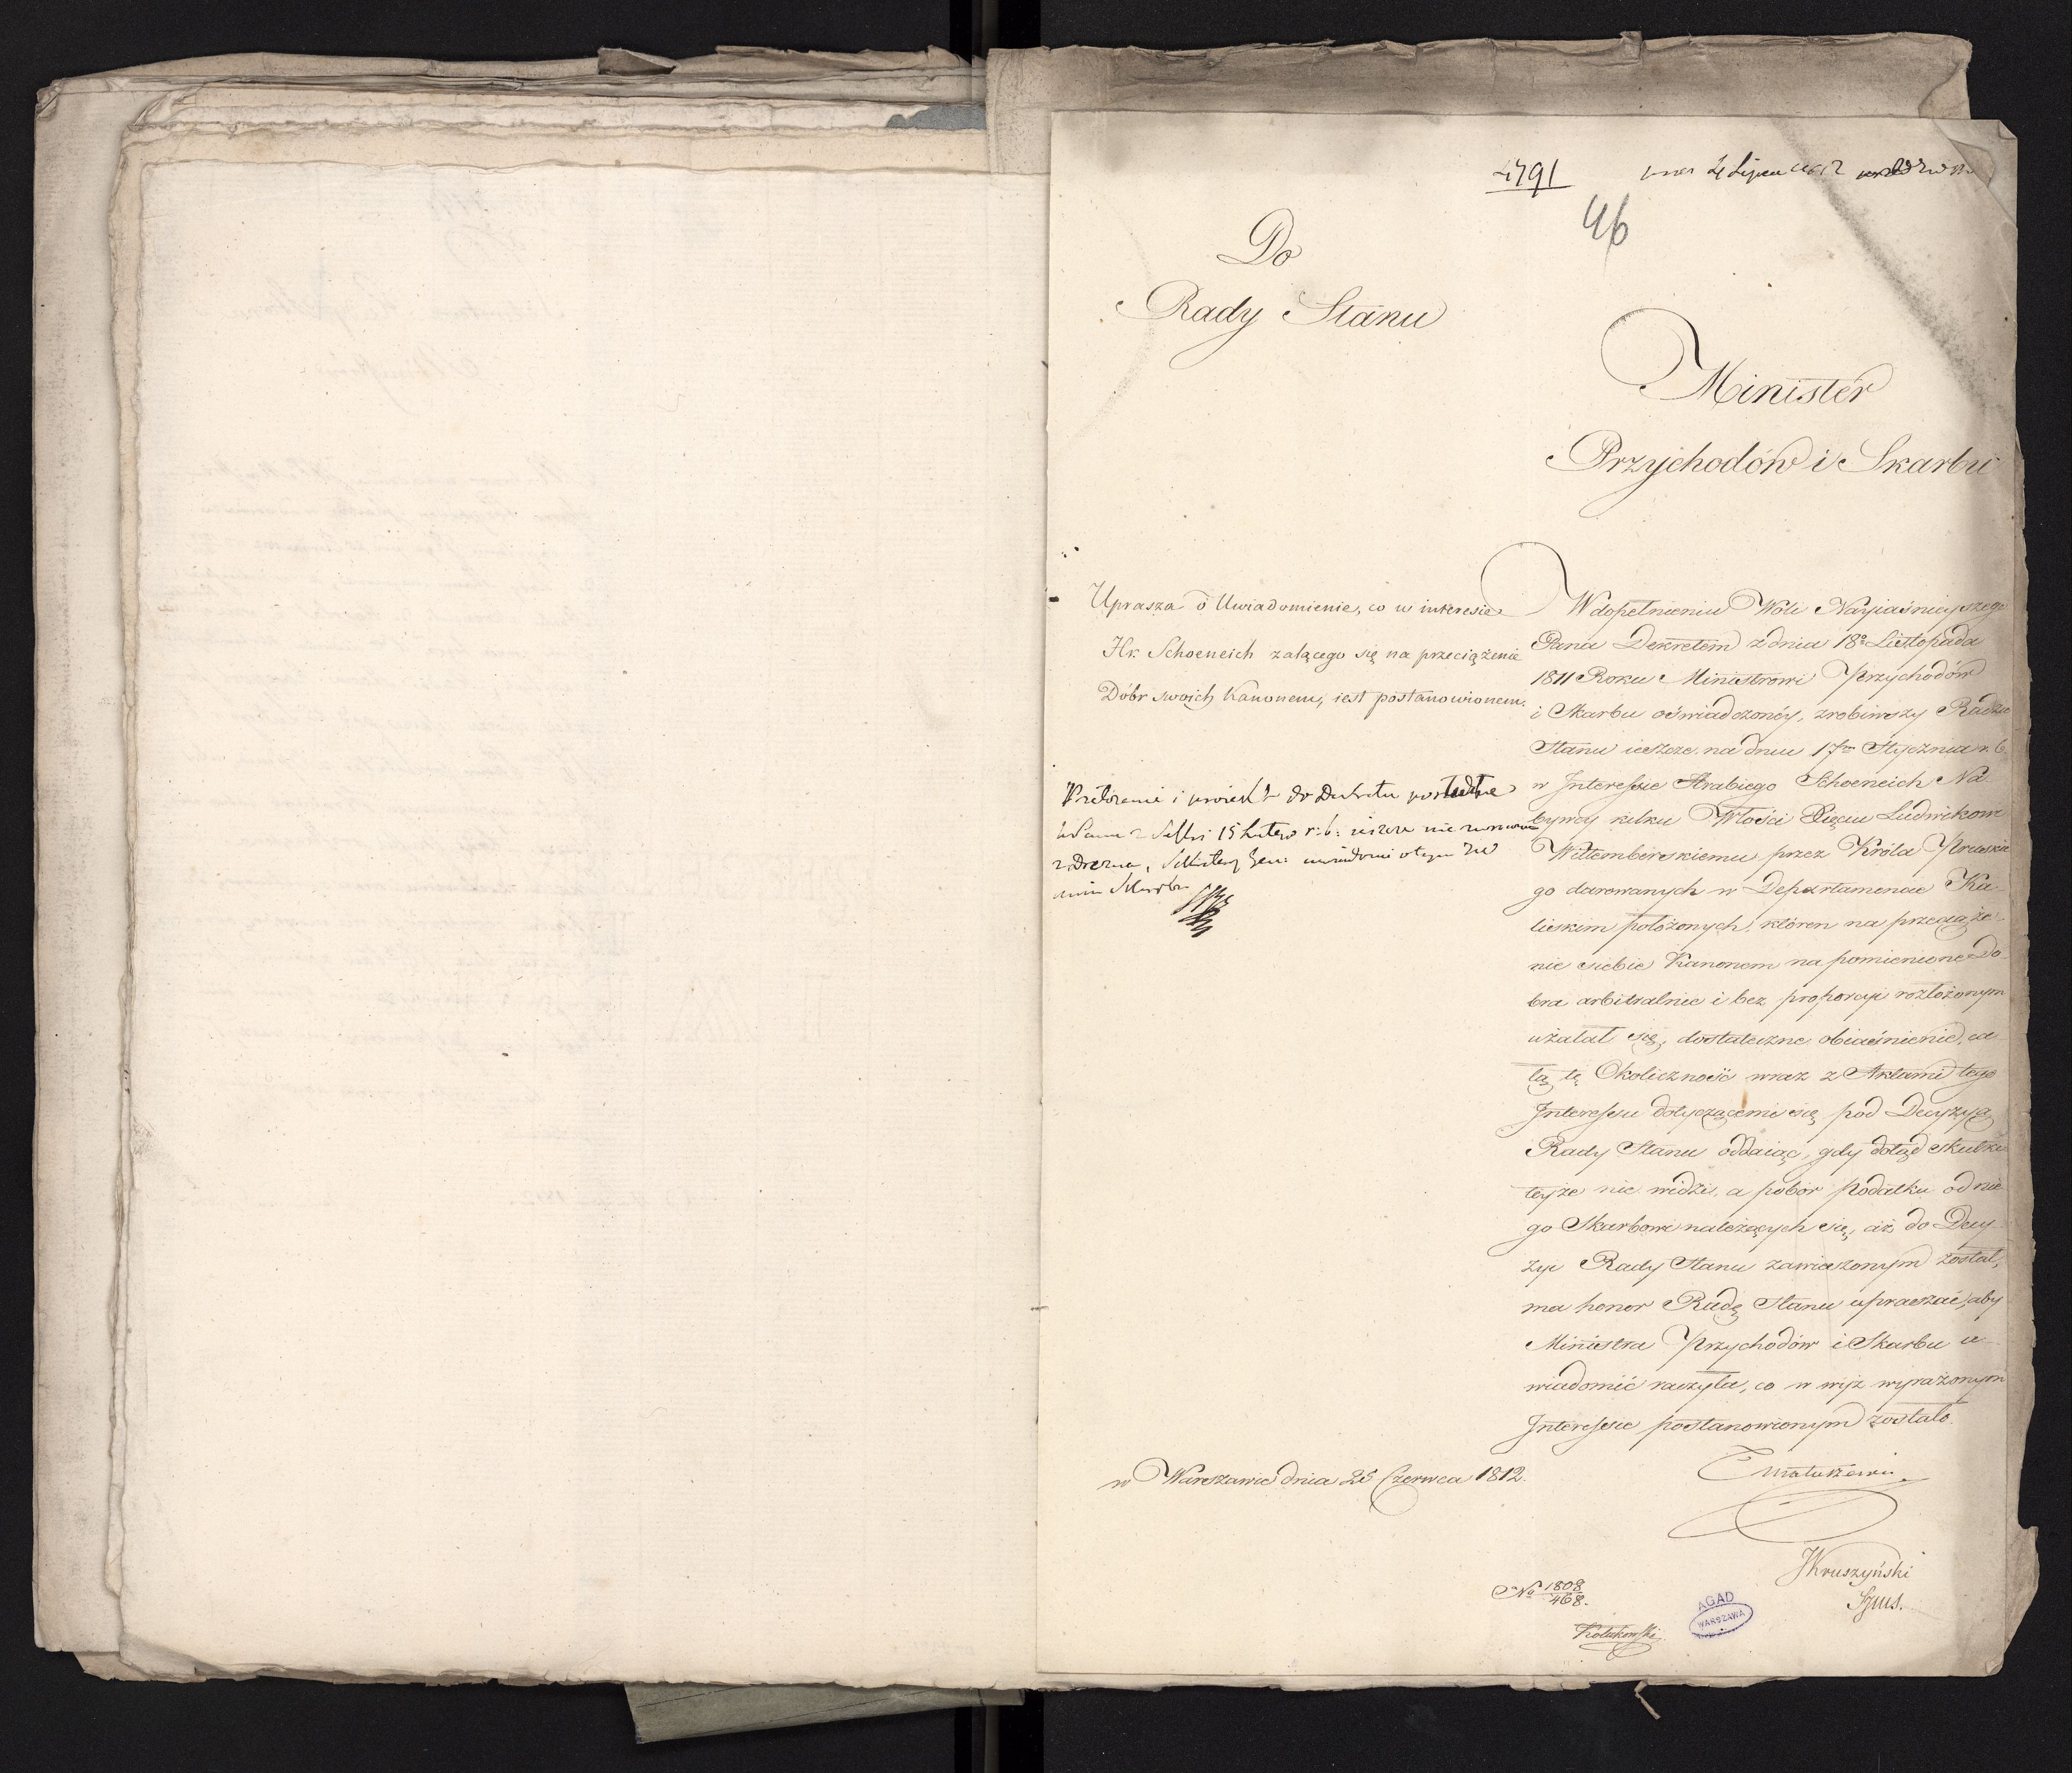 4791
4 Lipca 1812
46
Do
Rady Stanu
Minister
Przychodów i Skarbu
Uprasza o Uwiadomienie, co w interesie
Hr. Schoeneich żalącego się na przeciążenie
Dóbr swoich Kanonem, iest postanowionem.
Przełożenie i proiekt do Dekretu posłane
15 Lutego r. b. ieszcze nie
z Drezna, Sekretarz Gen: uwiadomi o tym
W dopełnieniu Woli Nayiaśnieyszego
Pana Dekretem z dnia 18º Listopada
1811 Roku Ministrowi Przychodów
i Skarbu oświadczonéy, zrobiwszy Radzie
Stanu ieszcze na dniu 17m Stycznia r. b.
w Interessie Hrabiego Schoeneich Na
bywcy kilku Włości Xięciu Ludwikowi
Wittemberskiemu przez Króla Pruskie
go darowanych w Departamencie Ka-
liskim położonych, któren na przeciąże-
nie siebie Kanonem na pomienione Do-
bra arbitralnie i bez proporcyi rozłożonym
użalał się, dostateczne obiaśnienie, ca-
łą tę Okoliczność wraz z Aktami tego
Interessu dotyczącemi się pod Decyzyą
Rady Stanu oddaiąc, gdy dotąd skutku
teyże nie widzi, a pobór podatku od nie
go Skarbowi należących się, aż do Decy-
zyi Rady Stanu zawieszonym został,
ma honor Radę Stanu upraszać, aby
Ministra Przychodów i Skarbu u-
wiadomić raczyła, co w wyż wyrażonym
Interessie postanowionym zostało.
w Warszawie dnia 25 Czerwca 1812.
Matuszewic
JKruszyński
No 1808/468.
AGAD
WARSZAWA